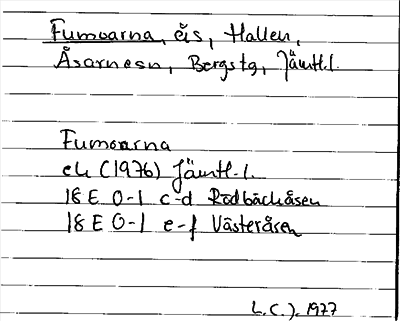 Fumoarna, eis, Hallen,
Åsarnesn, Bergstg, Jämtl.l.
Fumoarna
ek (1976) Jämtl-l.
18 E 0-1 c-d Rödbäckåsen
18 E 0-1 e-f Västeråsen
L.C.J. 1977